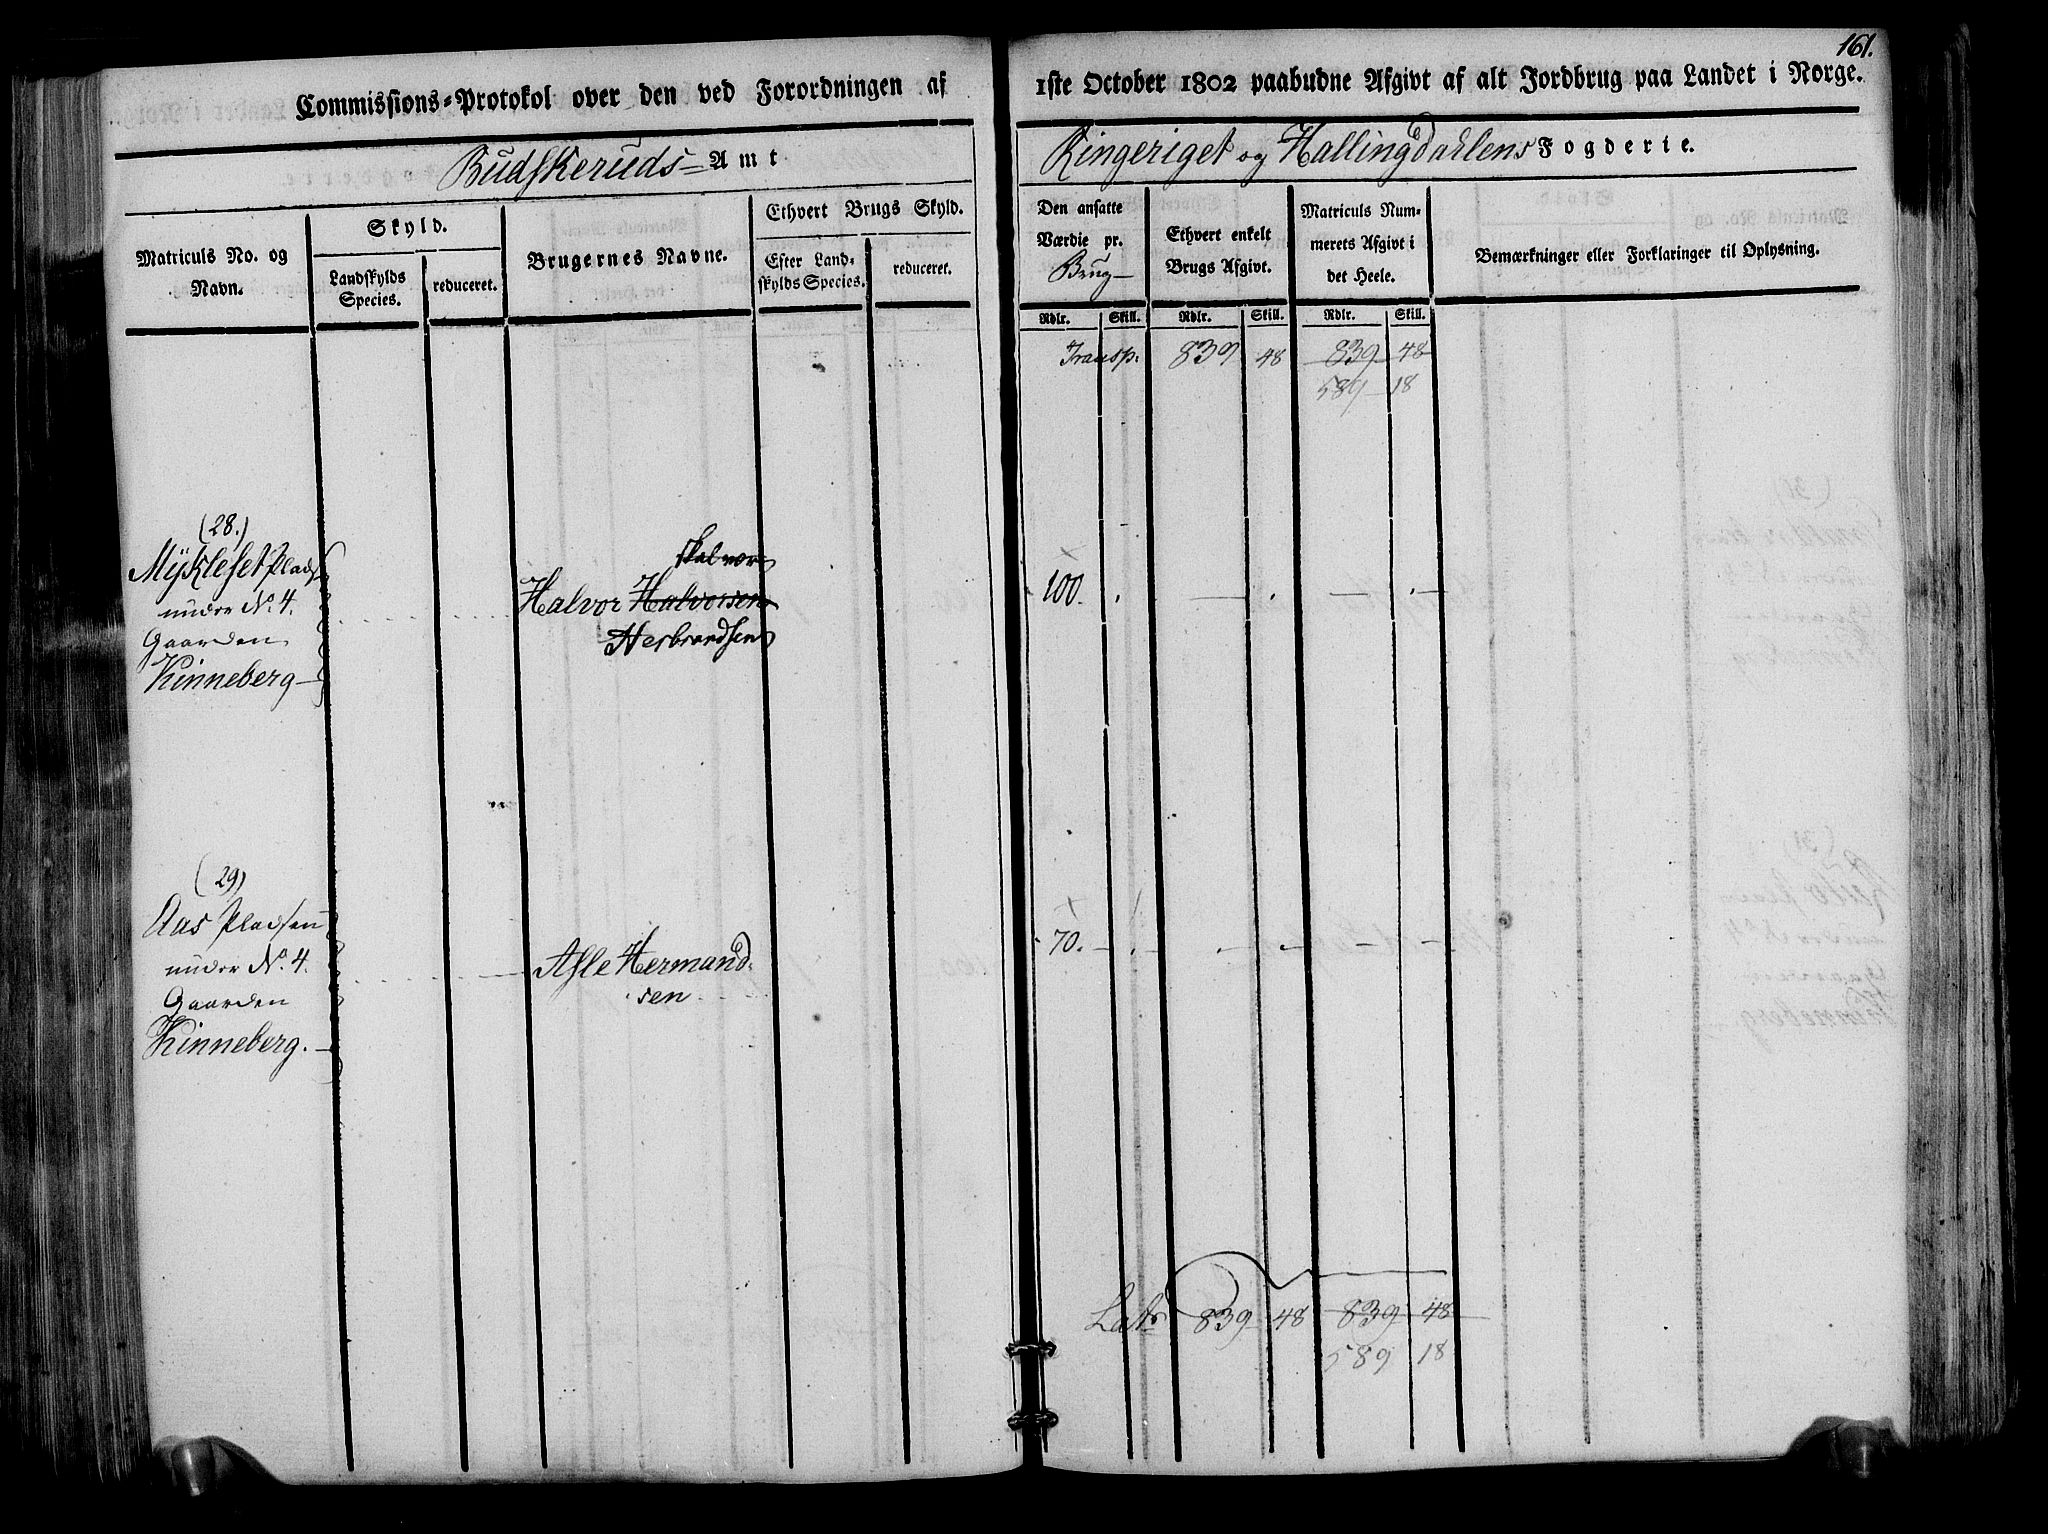 161.
Commissions-Protokol over den ved Forordningen af 1ste October 1802 paabudne Afgivt af alt Jordbrug paa Landet i Norge.
Budskeruds Amt
Ringeriget og Hallingdahlens Fogderie.
Matriculs No. og Navn.
Skyld.
Landskylds Species.
reduceret.
Brugernes Navne.
Ethvert Brugs Skyld.
Efter Landskylds Species.
reduceret.
Den ansatte Værdie pr. Brug
Ethvert enkelt Brugs Afgivt.
Matriculs Nummerets Afgivt i det Heele.
Bemærkninger eller Forklaringer til Oplysning.
Rdlr. Skill. Rdlr. Skill. Rdlr. Skill.
Transp. 839 48 839 48
589 18
(28.)
Mykleset Plads
under No. 4.
Gaarden
Kinneberg
skal være
Halvor Halvorsen
Hesbrandsen
100.
(29)
Aas Pladsen
under No. 4.
Gaarden
Kinneberg.
Asle Hermandsen
70.
Lats 839 48 839 48
589 18